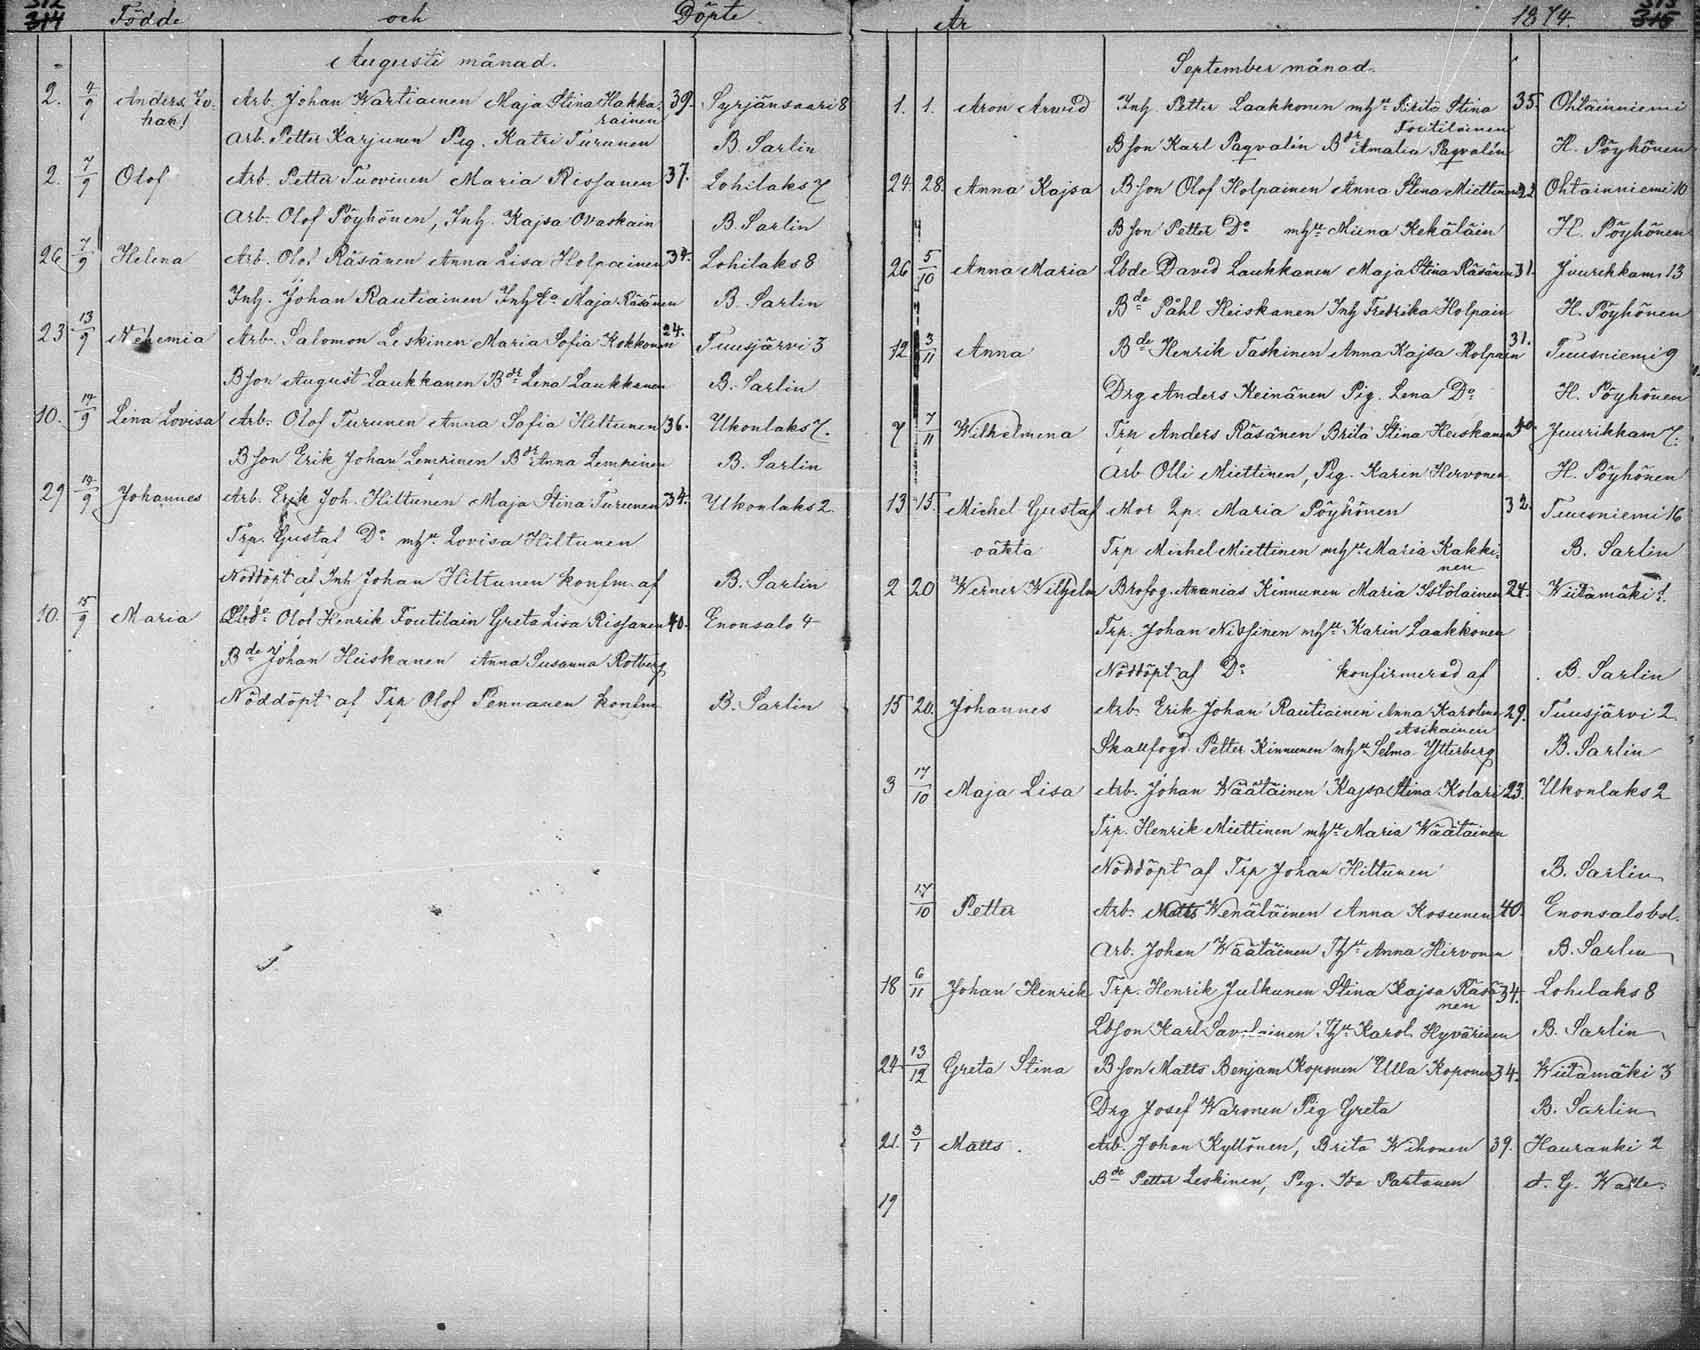 312
314 Födde och Döpte
Augusti månad.
2. 4/9 Anders Jo- Arb. Johan Wartiainen Maja Stina Hakka- 39. Syrjänsaari 8
han rainen
Arb. Petter Karjunen Pig. Katri Turunen B. Sarlin
2. 7/9 Olof Arb. Petter Tuovinen Maria Rissanen 37. Lohilaks 7
Arb. Olof Pöyhönen, Inh. Kajsa Ovaskain B. Sarlin
26 7/9 Helena Arb. Olof Räsänen Anna Lisa Holpainen 34. Lohilaks 8
Inh. Johan Rautiainen Inh Maja Räsänen B. Sarlin
23 13/9 Nehemia Arb. Salomon Leskinen Maria Sofia Kokkonen 24. Tuusjärvi 3
Bson August Laukkanen Bdr Lena Laukkanen B. Sarlin
10. 14/9 Lina Lovisa Arb. Olof Turunen Anna Sofia Hiltunen 36. Ukonlaks 7.
Bson Erik Johan Lempinen Bdr Anna Lempinen B. Sarlin
29 14/9 Johannes Arb. Erik Joh. Hiltunen Maja Stina Turunen 34. Ukonlaks 2
Trp. Gustaf Do mhu Lovisa Hiltunen
Nöddöpt af Inh Johan Hiltunen konfm. af B. Sarlin
10. 15/9 Maria Olof Henrik Foutilain Greta Lisa Rissanen 40. Enonsalo 4
Bde Johan Heiskanen Anna Susanna Rotberg
Nöddöpt af Trp Olof Pennanen konfm B. Sarlin
År 1874. 315
September månad.
1. 1. Aron Arvid Inh. Petter Laakkonen mhu Brita Stina 35. Ohtainniemi
Foutilainen
Bson Karl Paqvalin Bdr Amalia Paqvalin H. Pöyhönen
24. 28. Anna Kajsa Bson Olof Holpainen Anna Stina Miettinen 22 Ohtainniemi 10
Bson Petter Do mhu Miina Kekäläin H. Pöyhönen
26 5/10 Anna Maria Lbde David Laukkanen Maja Stina Räsänen 31. Juurikkam. 13
Bde Påhl Heiskanen Inh Fredrika Holpain H. Pöyhönen
12 3/11 Anna Bde Henrik Taskinen Anna Kajsa Holpain 31. Tuusniemi 9
Drg Anders Keinänen Pig. Lena Do H. Pöyhönen
7 7/11 Wilhelmina Trp Anders Räsänen Brita Stina Heiskanen 40. Juurikkam 7.
Arb Olli Miettinen, Pig. Karin Hirvonen H. Pöyhönen
13 15. Michel Gustaf Mor Lp. Maria Pöyhönen 32. Tuusniemi 16
oäkta Trp Michel Miettinen mhu Maria Kakki- B. Sarlin
nen
2 20 Werner Wilhelm Brofog. Ananias Kinnunen Maria Sistolainen 24. Wiitamäki 1.
Trp. Johan Nissinen mhu Karin Laakkonen
Nöddöpt af Do konfirmerad af B. Sarlin
15 20. Johannes Arb. Erik Johan Rautiainen Anna Karolina 29. Tuusjärvi 2
Asikainen
Skallfogd Petter Kinnunen mhu Selma Ytterberg B. Sarlin
3 17/10 Maja Lisa Arb. Johan Wäätäinen Kajsa Stina Kolari 23. Ukonlaks 2
Trp. Henrik Miettinen mhu Maria Wäätäinen
Nöddöpt af Trp Johan Hiltunen B. Sarlin
17/10 Petter Arb. Matts Wenäläinen Anna Kosunen 40. Enonsalo bol.
Arb. Johan Wäätäinen Anna Hirvonen B. Sarlin
18 6/11 Johan Henrik Trp. Henrik Julkunen Stina Kajsa Räsä- 34. Lohilaks 8
nen
Lbson Karl Savolainen Karol. Hyvärinen B. Sarlin
24 13/12 Greta Stina Bson Matts Benjam Koponen Ulla Koponen 34. Wiitamäki 3
Drg Josef Waronen Pig Greta B. Sarlin
21. 3/1 Matts. Arb. Johan Kyllönen, Brita Wihonen 39. Hauranki 2
Bde Petter Leskinen, Pig. Ida Partanen
19